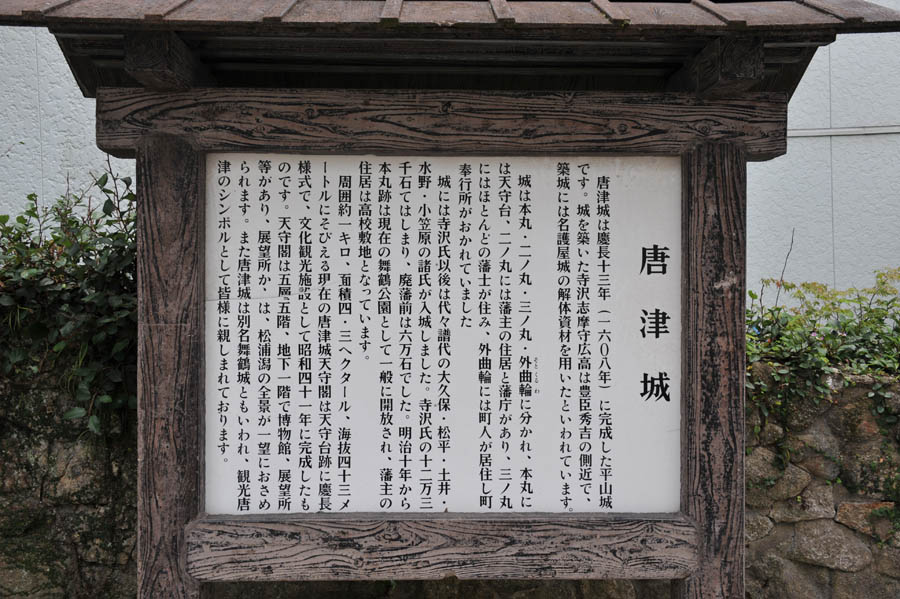 唐津城
唐津城は慶長十三年（一六〇八年）に完成した平山城
です。城を築いた寺沢志摩守広高は豊臣秀吉の側近で、
築城には名護屋城の解体資材を用いたといわれています。
城は本丸・二ノ丸・三ノ丸・外曲輪に分かれ、本丸に
は天守台、二ノ丸には藩主の住居と藩庁があり、三ノ丸
にはほとんどの藩士が住み、外曲輪には町人が居住し町
奉行所がおかれていました
城には寺沢氏以後は代々譜代の大久保・松平・土井・
水野・小笠原の諸氏が入城しました。寺沢氏の十二万三
千石ではしまり、廃藩前は六万石でした。明治十年から
本丸跡は現在の舞鶴公園として一般に開放され、藩主の
住居は高校敷地となっています。
周囲約一キロ、面積四・三ヘクタール、海抜四十三メ
ートルにそびえる現在の唐津城天守閣は天守台跡に慶長
様式で、文化観光施設として昭和四十一年に完成したも
のです。天守閣は五層五階、地下一階で博物館、展望所
等があり、展望所か、は、松浦潟の全景が一望におさめ
られます。また唐津城は別名舞鶴城ともいわれ、観光唐
津のシンボルとして皆様に親しまれております。